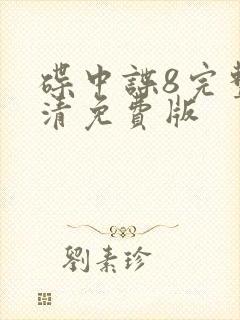 碟中諜8完整
清免費版
劉素珍